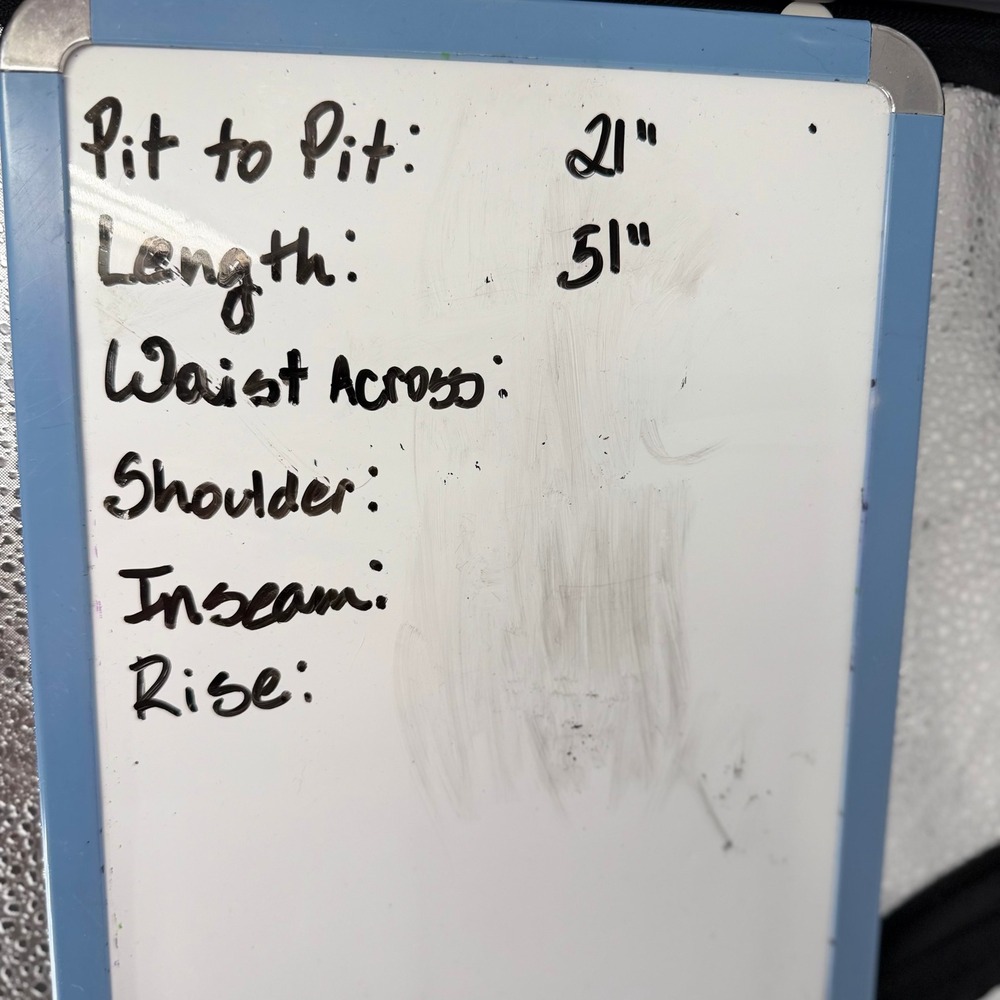 Pit to Pit: 21"
Length: 51"
Waist Across:
Shoulder:
Inseam:
Rise: